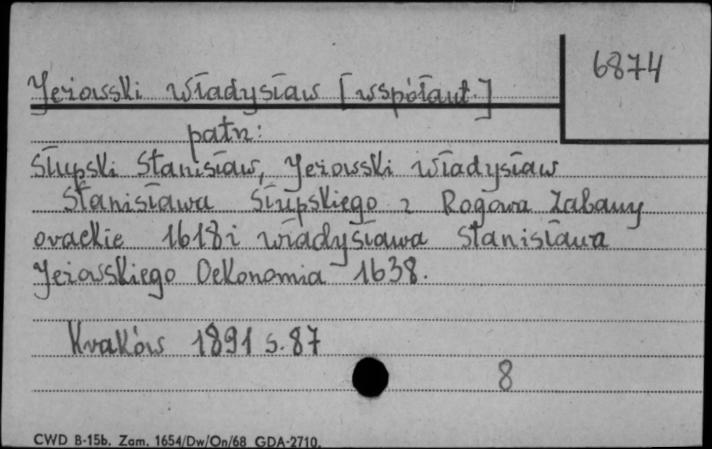 6874
Jeżowski Władysław [współaut.]
patrz:
Słupski Stanisław, Jeżowski Władysław
Stanisława Słupskiego z Rogowa Zabawy
orackie 1618 i Władysława Stanisława
Jeżowskiego Oekonomia 1638.
Kraków 1891 s. 87
8
CWD B-15b. Zam. 1654/Dw/On/68 GDA-2710.